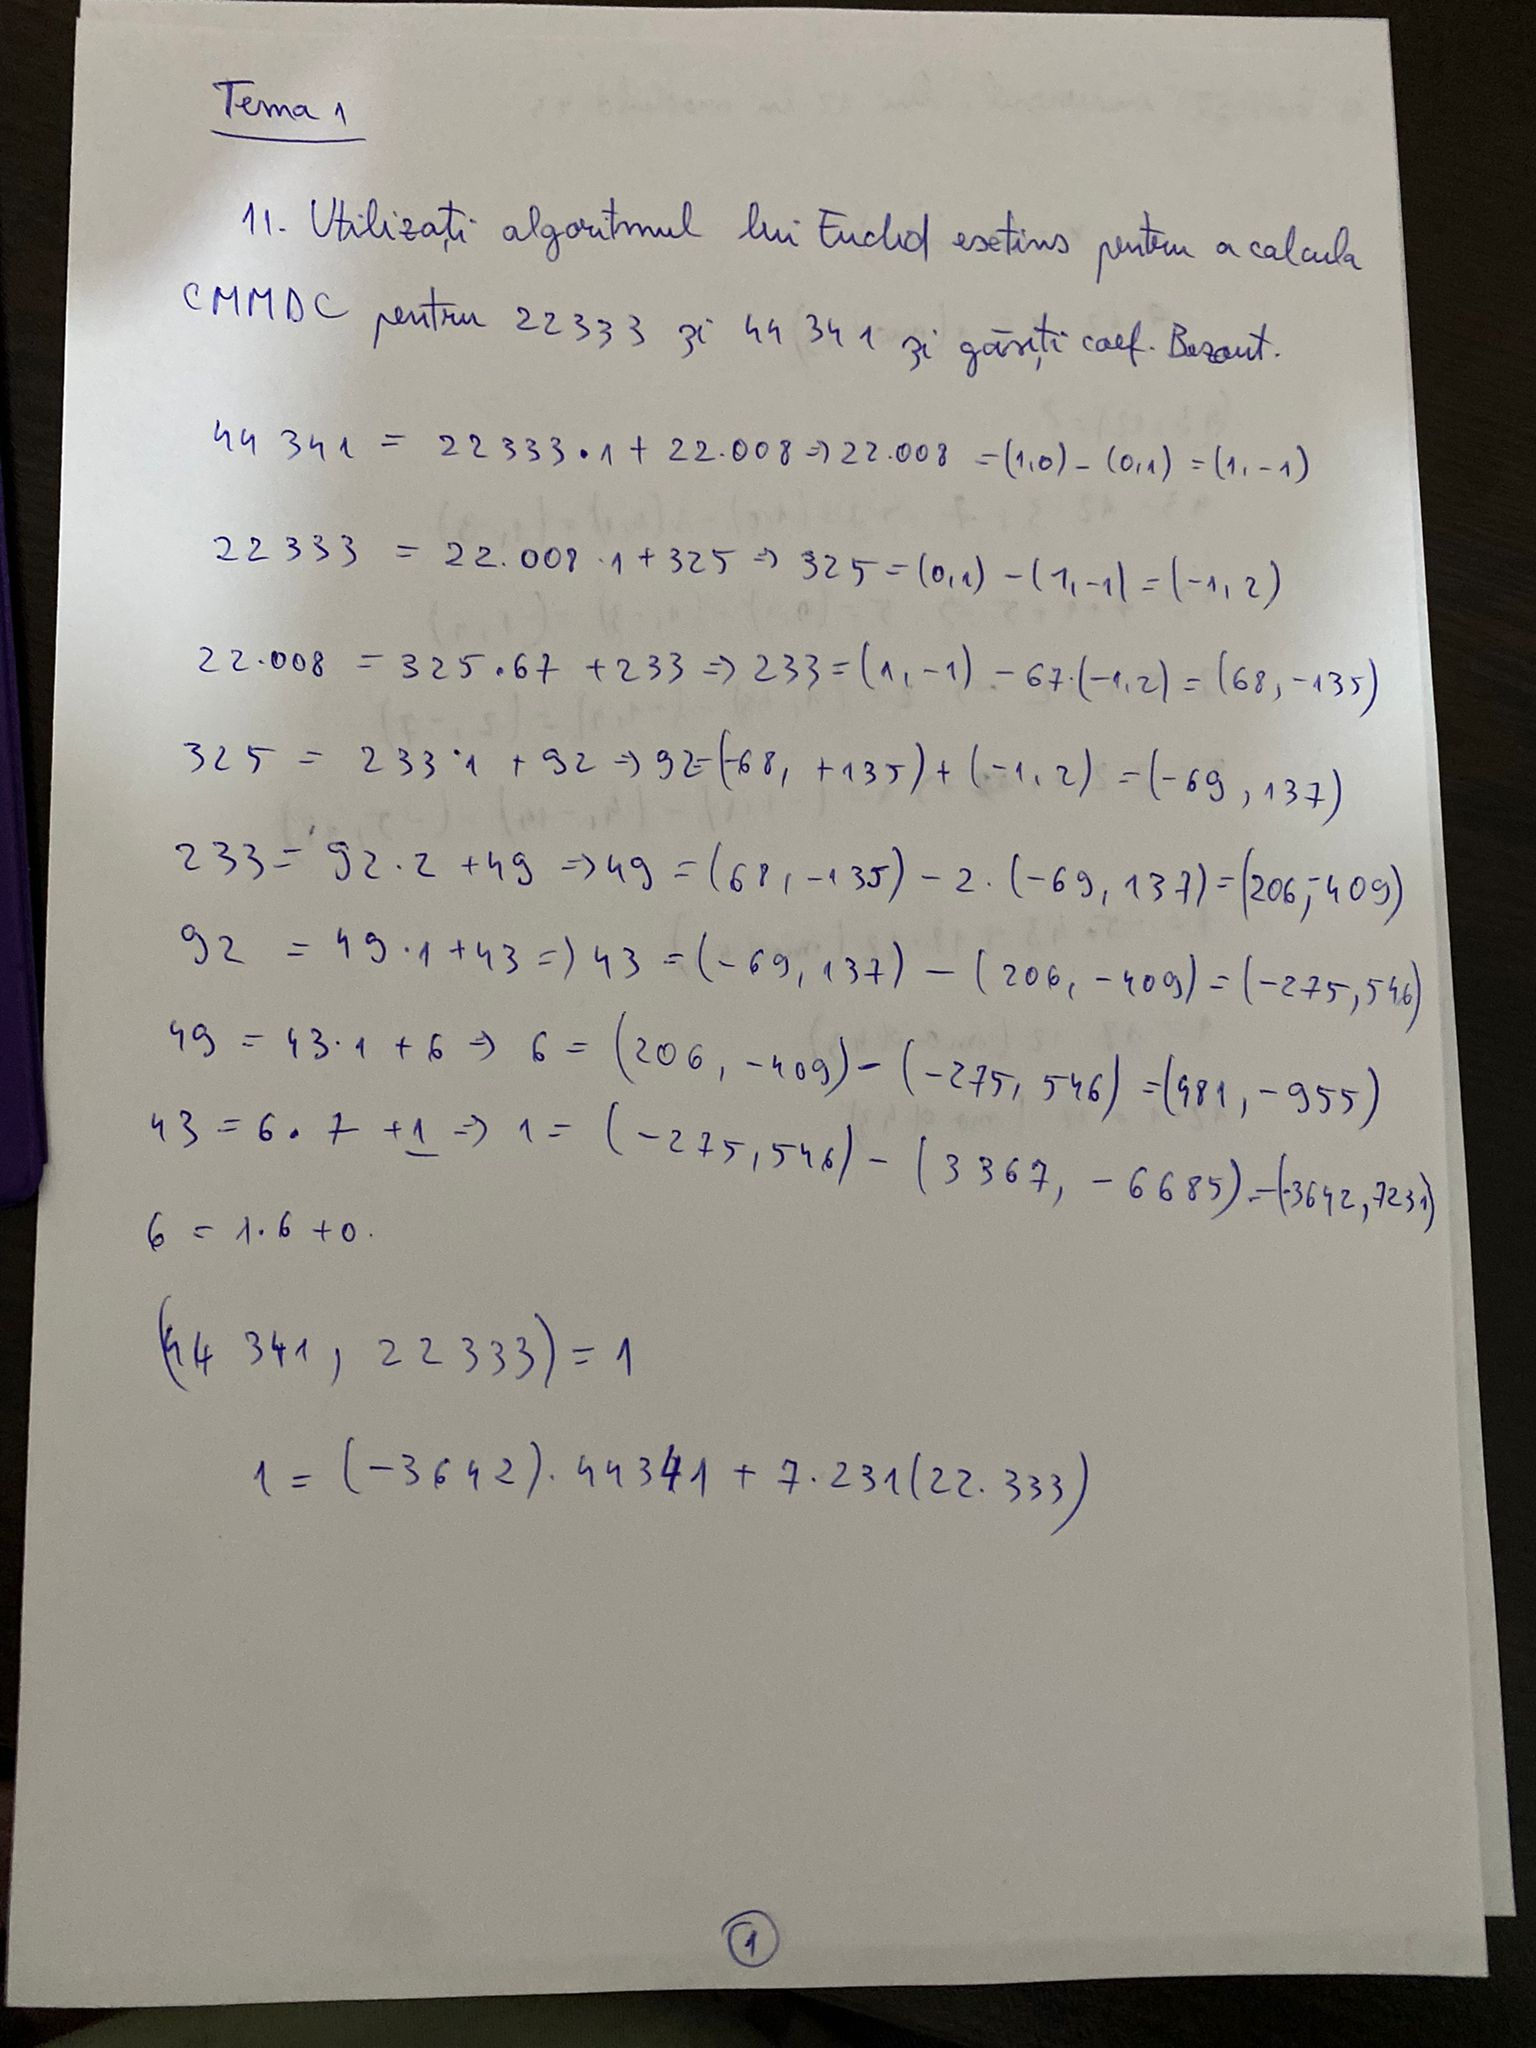 Tema 1
11. Utilizați algoritmul lui Euclid extins pentru a calcula
CMMDC pentru 22333 și 44341 și găsiți coef. Bezout.
44 341 = 22333·1 + 22.008 => 22.008 = (1,0) - (0,1) = (1,-1)
22333 = 22.008·1 + 325 => 325 = (0,1) - (1,-1) = (-1,2)
22.008 = 325·67 + 233 => 233 = (1,-1) - 67·(-1,2) = (68,-135)
325 = 233·1 + 92 => 92 = (-68, +135) + (-1,2) = (-69, 137)
233 = 92·2 + 49 => 49 = (68,-135) - 2·(-69,137) = (206,-409)
92 = 49·1 + 43 => 43 = (-69,137) - (206,-409) = (-275,546)
49 = 43·1 + 6 => 6 = (206,-409) - (-275,546) = (481,-955)
43 = 6·7 + 1 => 1 = (-275,546) - (3367,-6685) = (-3642,7231)
6 = 1·6 + 0.
(44 341, 22333) = 1
1 = (-3642)·44341 + 7.231(22.333)
1